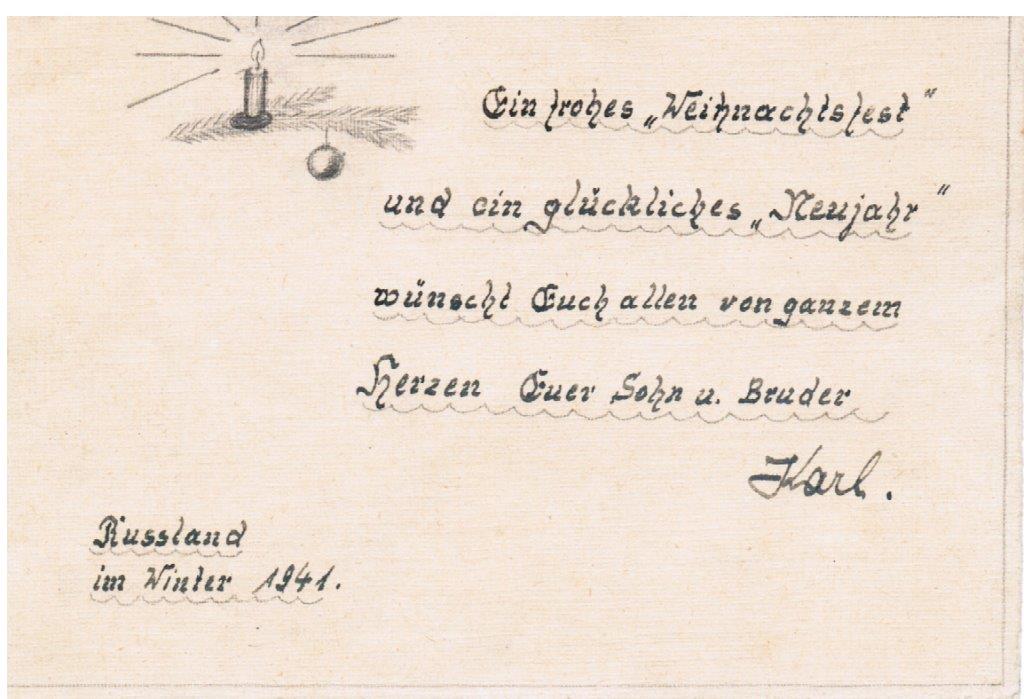 Ein frohes „Weihnachtsfest"
und ein glückliches „Neujahr"
wünscht Euch allen von ganzem
Herzen Euer Sohn u. Bruder
Karl.
Russland
im Winter 1941.